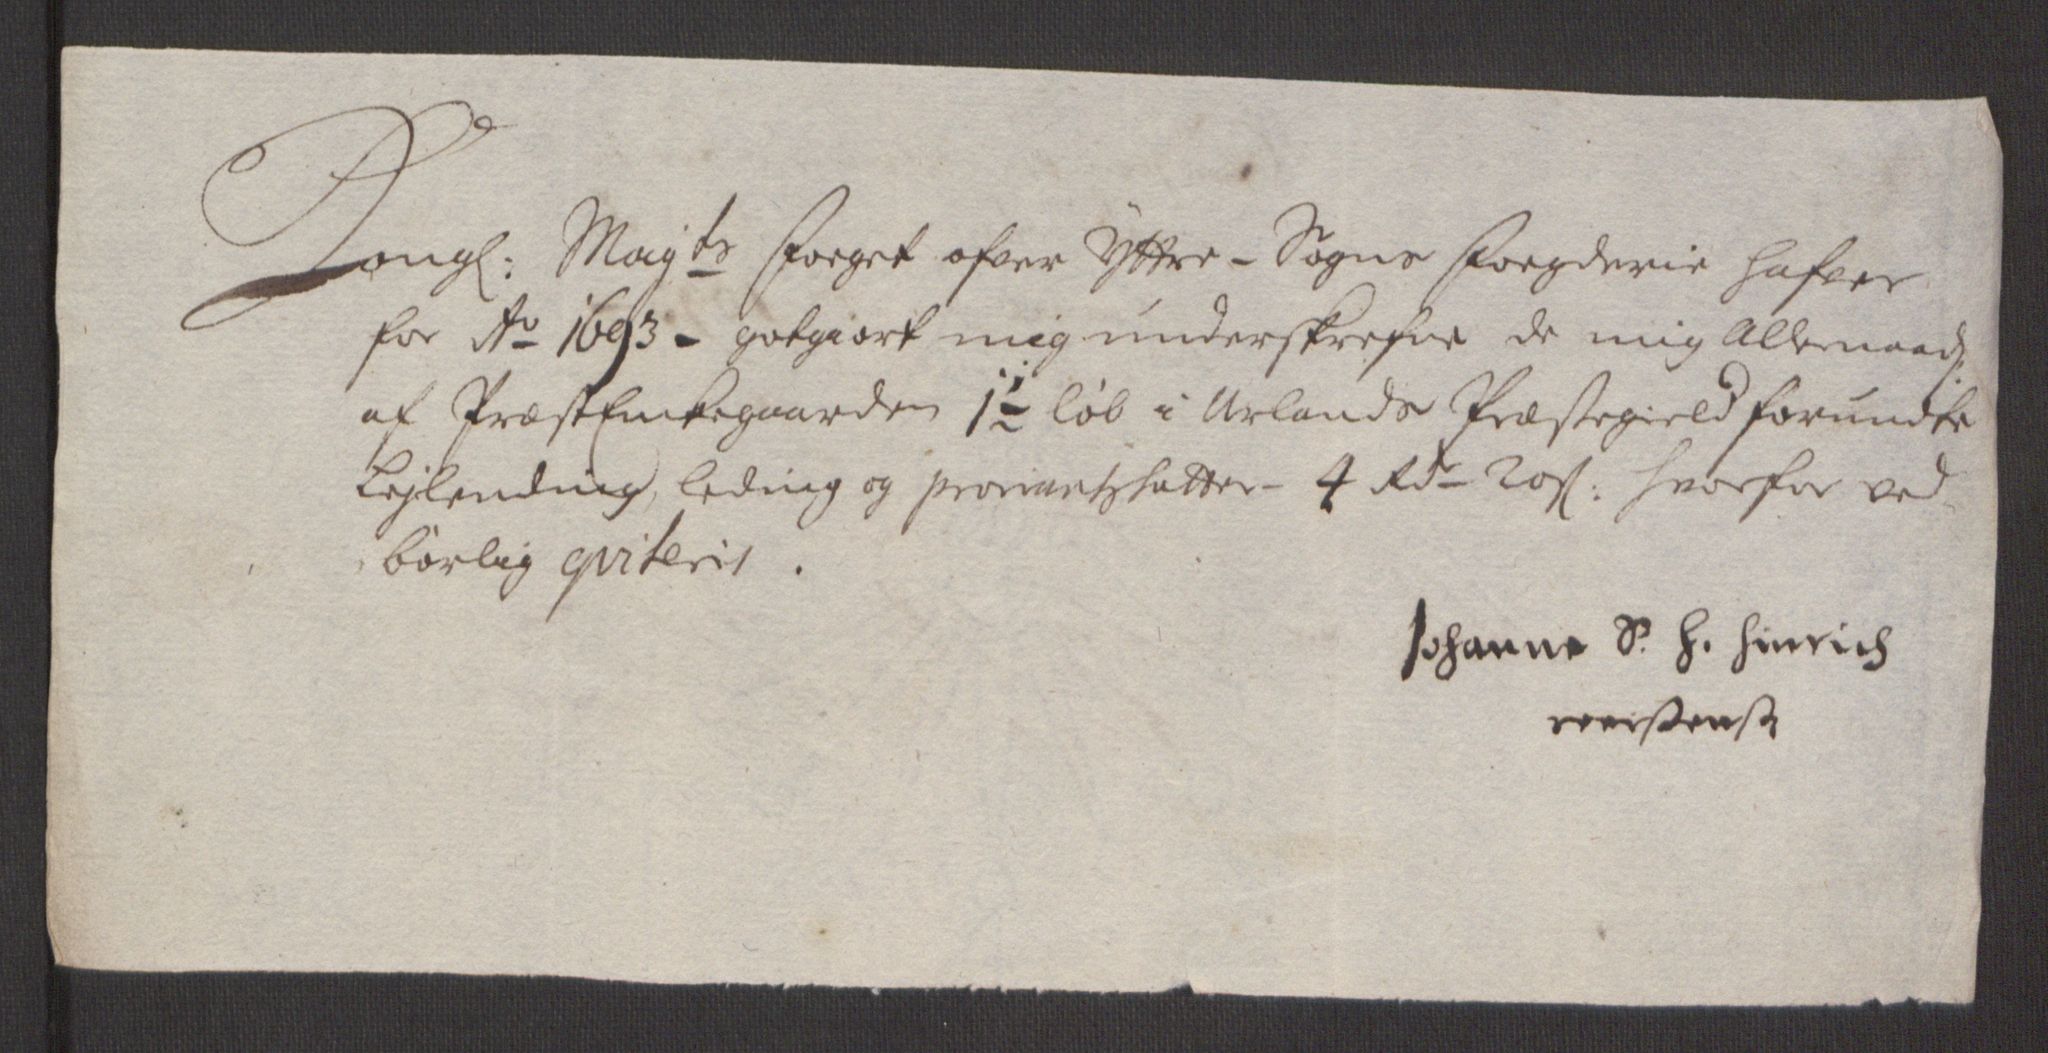 Kongl: Mayts Foeget ofver Yttre - Sogns Foegderie hafver
for Ao 1693 - gotgiort mig underskrefne de mig Allernaad:
af PræstEnkegaarden 1 løb i Urlands Præstegield forundte
Lejlending, leding og proviantschatter - 4 Rdr 20 s: hvorfor ved
børlig qviteris .
Johanne S. H. Hinrich